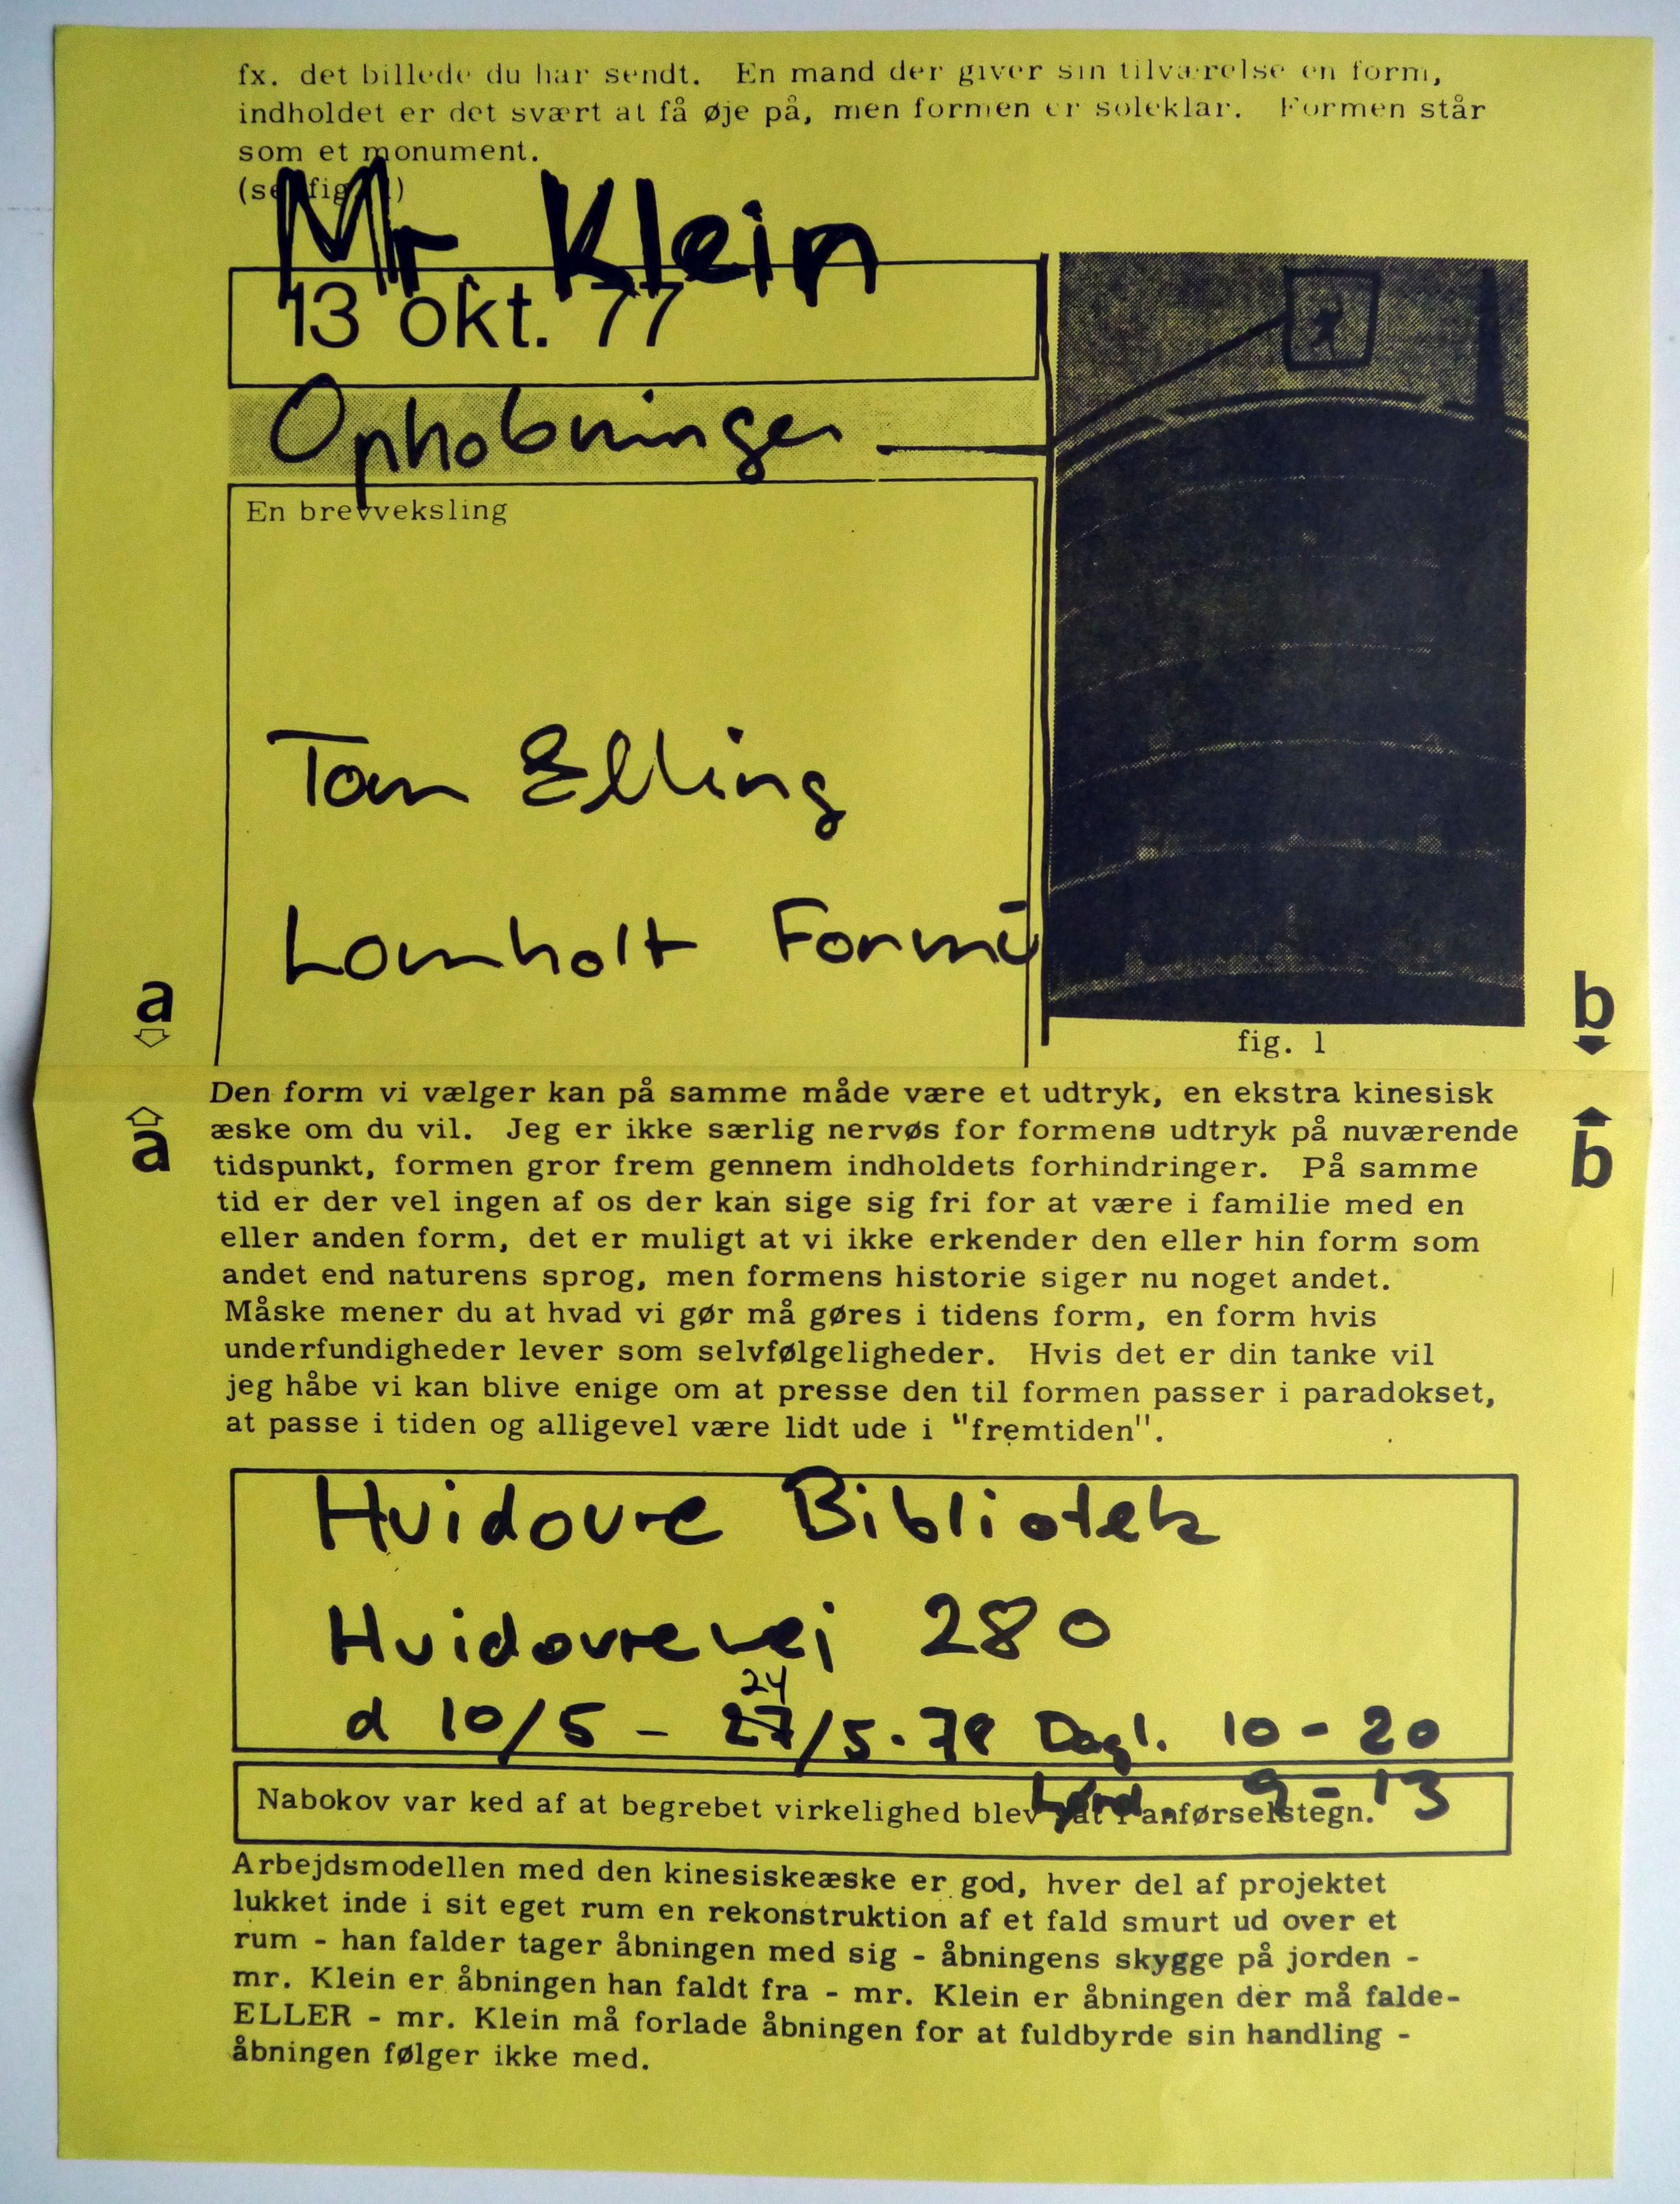 fx. det billede du har sendt. En mand der giver sin tilværelse en form,
indholdet er det svært at få øje på, men formen er soleklar. Formen står
som et monument.
(se fig 1)
Mr Klein
13 okt. 77
Ophobninger
En brevveksling
Tom Elling
Lomholt Formu
fig. 1
a
b
a
b
Den form vi vælger kan på samme måde være et udtryk, en ekstra kinesisk
æske om du vil. Jeg er ikke særlig nervøs for formens udtryk på nuværende
tidspunkt, formen gror frem gennem indholdets forhindringer. På samme
tid er der vel ingen af os der kan sige sig fri for at være i familie med en
eller anden form, det er muligt at vi ikke erkender den eller hin form som
andet end naturens sprog, men formens historie siger nu noget andet.
Måske mener du at hvad vi gør må gøres i tidens form, en form hvis
underfundigheder lever som selvfølgeligheder. Hvis det er din tanke vil
jeg håbe vi kan blive enige om at presse den til formen passer i paradokset,
at passe i tiden og alligevel være lidt ude i "fremtiden".
Hvidovre Bibliotek
Hvidovrevej 280
24
d 10/5 - 27/5-78 Dagl. 10-20
Lørd 9-13
Nabokov var ked af at begrebet virkelighed blev sat i anførselstegn.
Arbejdsmodellen med den kinesiskeæske er god, hver del af projektet
lukket inde i sit eget rum en rekonstruktion af et fald smurt ud over et
rum - han falder tager åbningen med sig - åbningens skygge på jorden -
mr. Klein er åbningen han faldt fra - mr. Klein er åbningen der må falde-
ELLER - mr. Klein må forlade åbningen for at fuldbyrde sin handling -
åbningen følger ikke med.